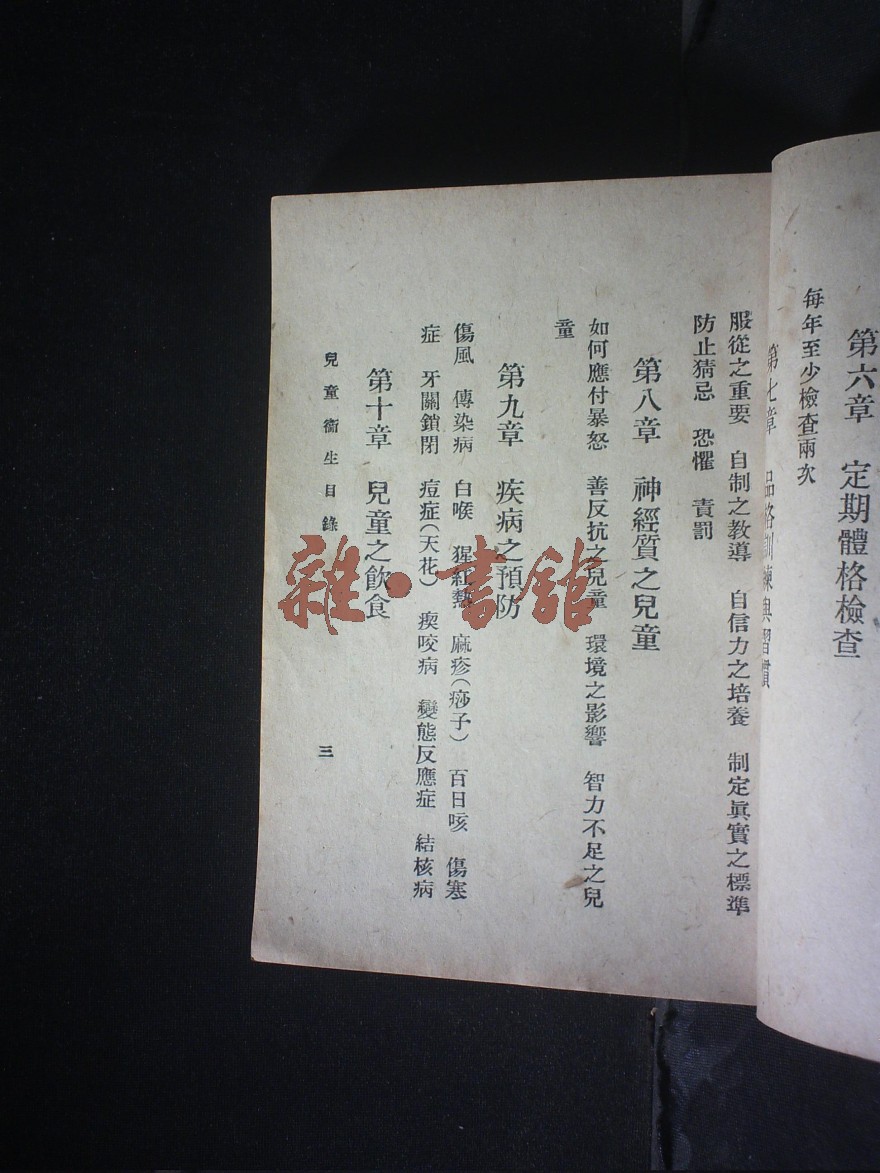 第六章　定期體格檢查
每年至少檢查兩次
第七章　品格訓練與習慣
服從之重要　自制之教導　自信力之培養　制定眞實之標準
防止猜忌　恐懼　責罰
第八章　神經質之兒童
如何應付暴怒　善反抗之兒童　環境之影響　智力不足之兒
童
第九章　疾病之預防
傷風　傳染病　白喉　猩紅熱　麻疹（痧子）　百日咳　傷寒
症　牙關鎖閉　痘症（天花）　瘈咬病　變態反應症　結核病
第十章　兒童之飲食
兒童衞生目錄
三
雜·書館